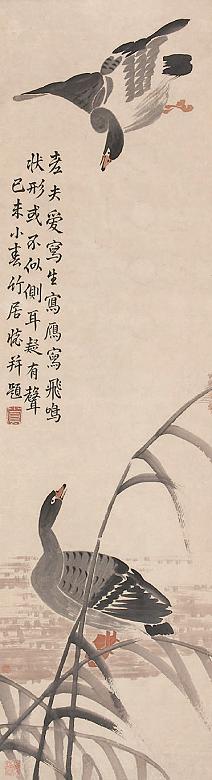 老夫愛寫生寫鴈寫飛鳴
狀形或不似側耳疑有聲
己未小春竹居悗并題